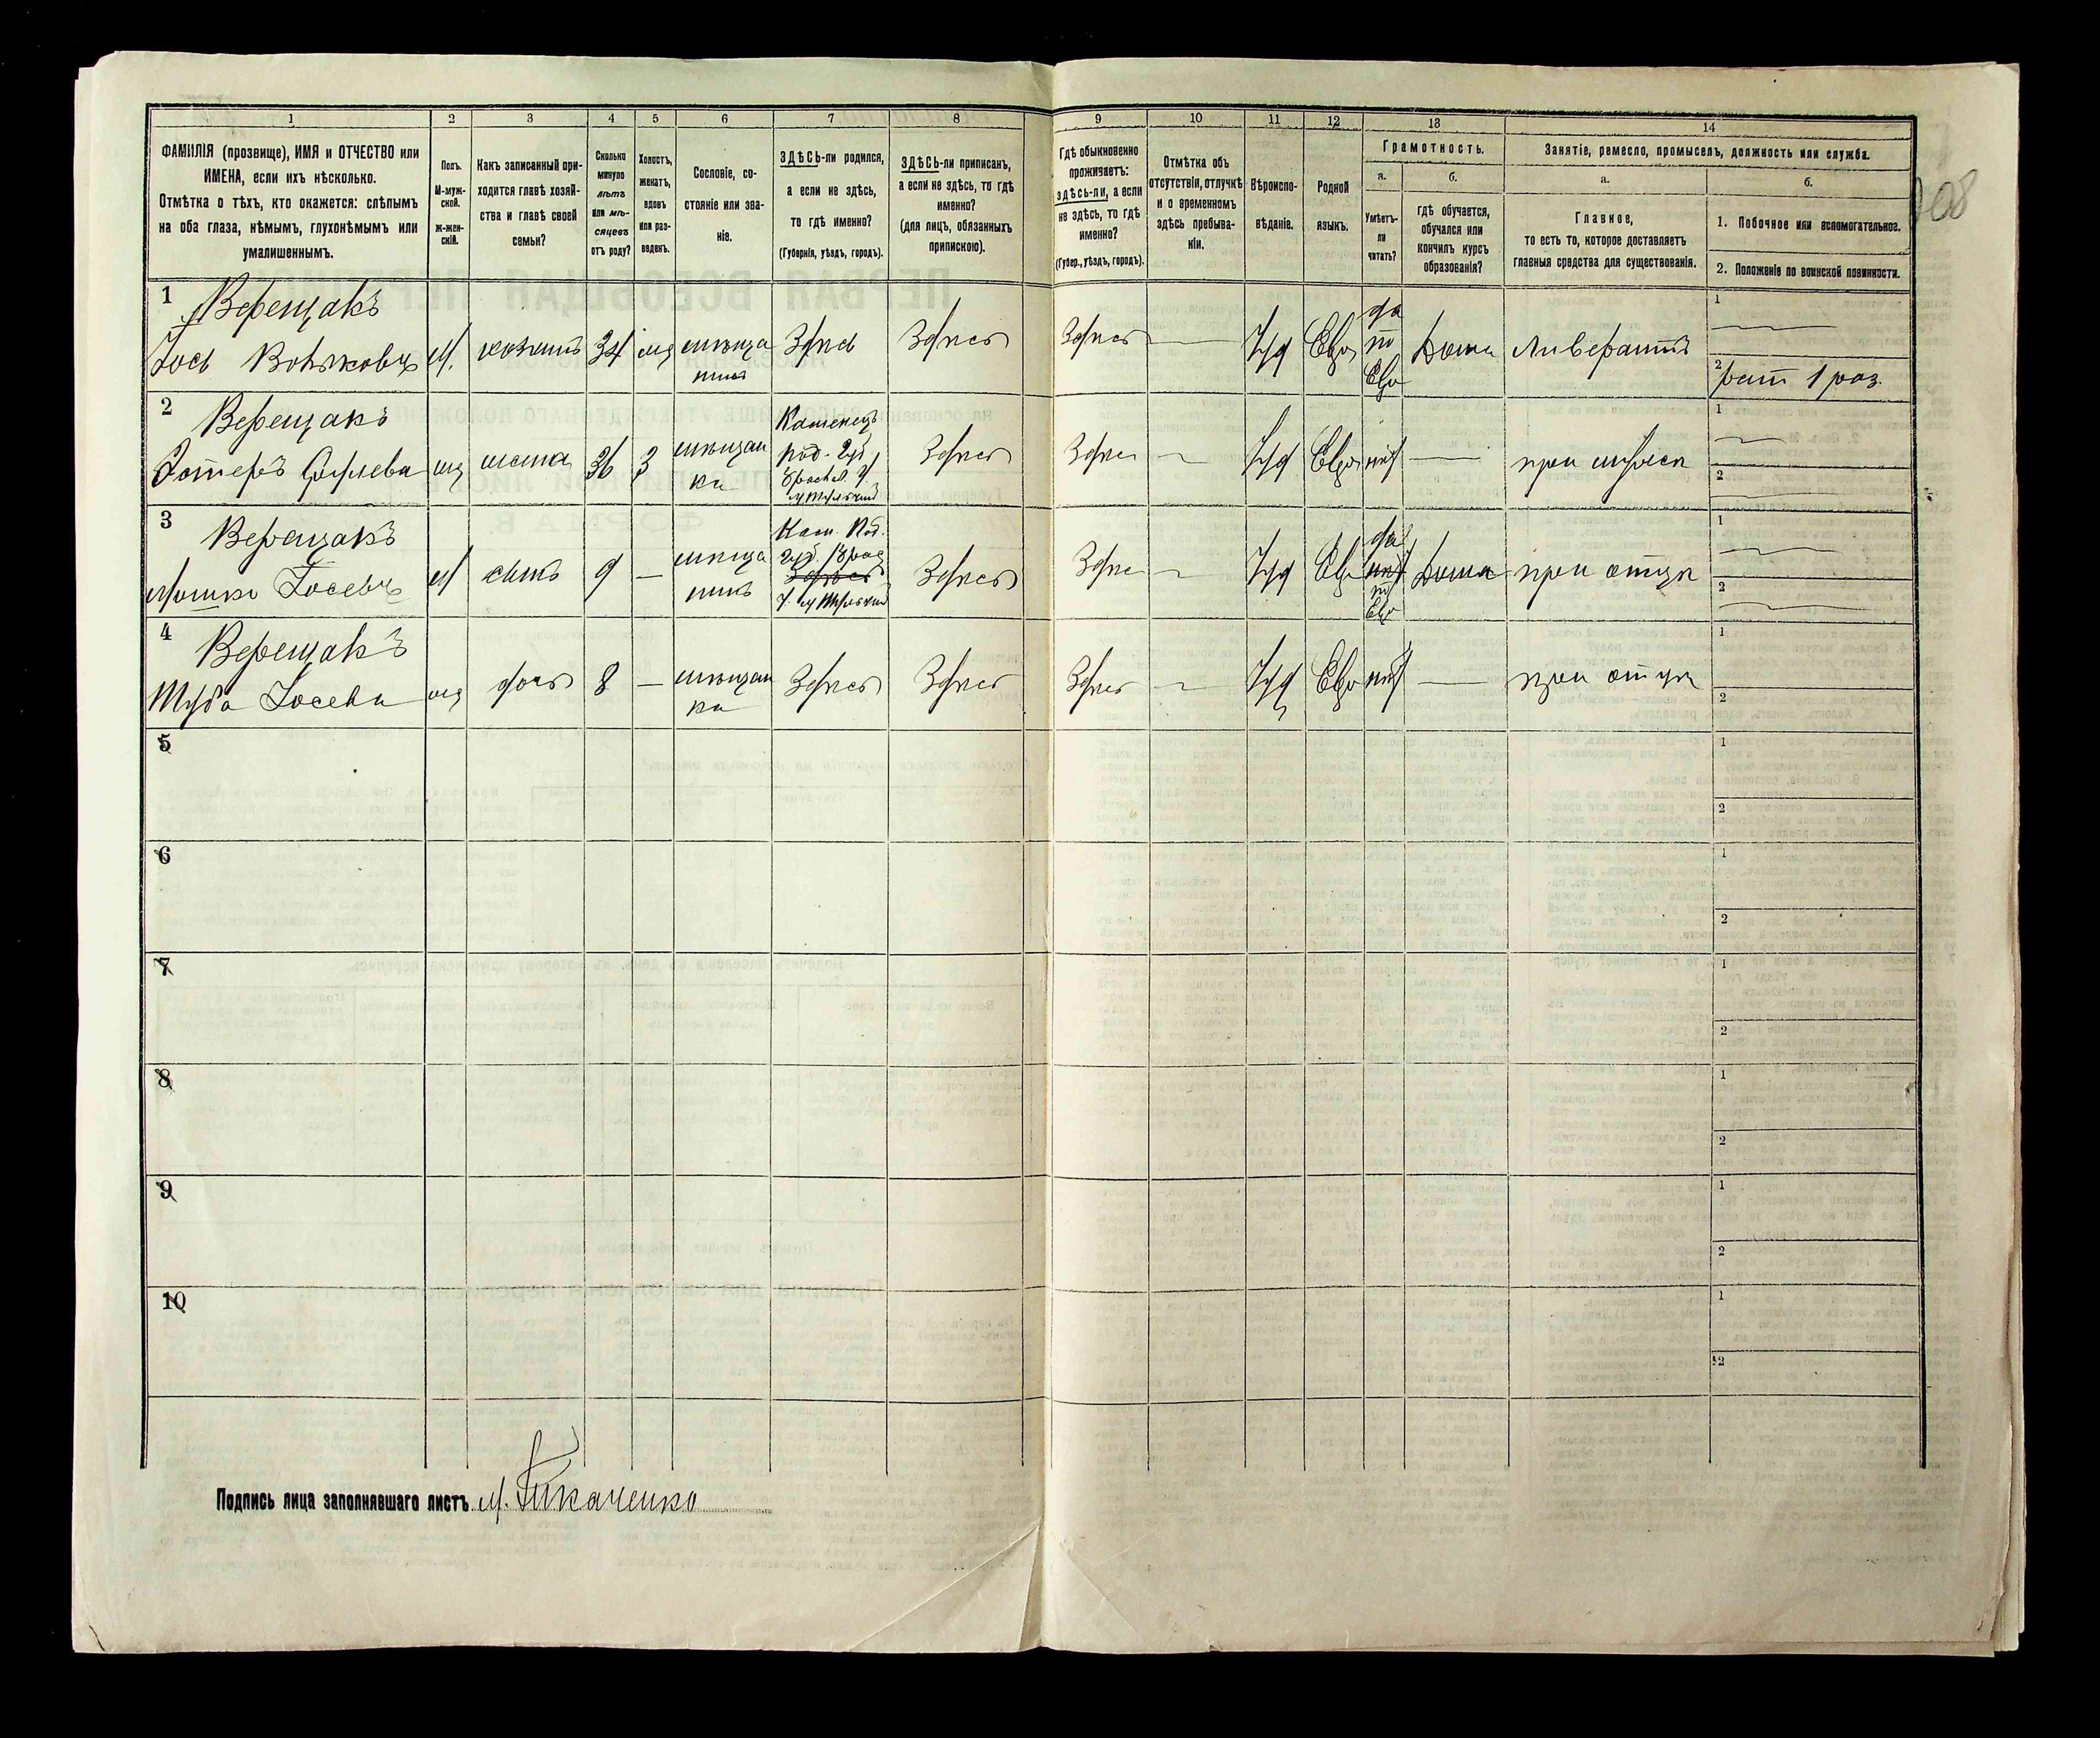 1 2 3 4 5 6 7 8 9 10 11 12 13 14
ФАМИЛІЯ (прозвище), ИМЯ и ОТЧЕСТВО или
ИМЕНА, если ихъ нѣсколько.
Отмѣтка о тѣхъ, кто окажется: слѣпымъ
на оба глаза, нѣмымъ, глухонѣмымъ или
умалишеннымъ.
Полъ.
М-муж-
ской.
ж-жен-
скій.
Какъ записанный при-
ходится главѣ хозяй-
ства и главѣ своей
семьи?
Сколько
минуло
лѣтъ
или мѣ-
сяцевъ
отъ роду?
Холостъ,
женатъ,
вдовъ
или раз-
веденъ.
Сословіе, со-
стояніе или зва-
ніе.
ЗДѢСЬ-ли родился,
а если не здѣсь,
то гдѣ именно?
(Губернія, уѣздъ, городъ).
ЗДѢСЬ-ли приписанъ,
а если не здѣсь, то гдѣ
именно?
(для лицъ, обязанныхъ
припискою).
Гдѣ обыкновенно
проживаетъ:
здѣсь-ли, а если
не здѣсь, то гдѣ
именно?
(Губер., уѣздъ, городъ).
Отмѣтка объ
отсутствіи, отлучкѣ
и о временномъ
здѣсь пребыва-
ніи.
Вѣроиспо-
вѣданіе.
Родной
языкъ.
Грамотность.
а.
Умѣетъ-
ли
читать?
б.
гдѣ обучается,
обучался или
кончилъ курсъ
образованія?
Занятіе, ремесло, промыселъ, должность или служба.
а.
Главное,
то есть то, которое доставляетъ
главныя средства для существованія.
б.
1. Побочное или вспомогательное.
2. Положеніе по воинской повинности.
1 Верещакъ
м. 34 Здѣсь Здѣсь Здѣсь Іуд Евр да по Евр Дома
мѣща
нинъ
1
2 рат 1 раз.
2 Верещакъ
жена 36 Здѣсь Здѣсь Іуд Евр нѣт
мѣщан
ка
Каменецъ
под. губ
1
2
3 Верещакъ
Мошко Іосевъ м сынъ 9 — Здѣсь Здѣсь Іуд Евр Дома при отцѣ
мѣща
нинъ
Кам. Под.
губ
да
по
Евр
1
2
4 Верещакъ
Туба Іосева дочь 8 — Здѣсь Здѣсь Здѣсь Іуд Евр нѣт — при отцѣ
мѣщан
ка
1
2
5 1
2
6 1
2
7 1
2
8 1
2
9 1
2
10 1
2
Подпись лица заполнявшаго листъ